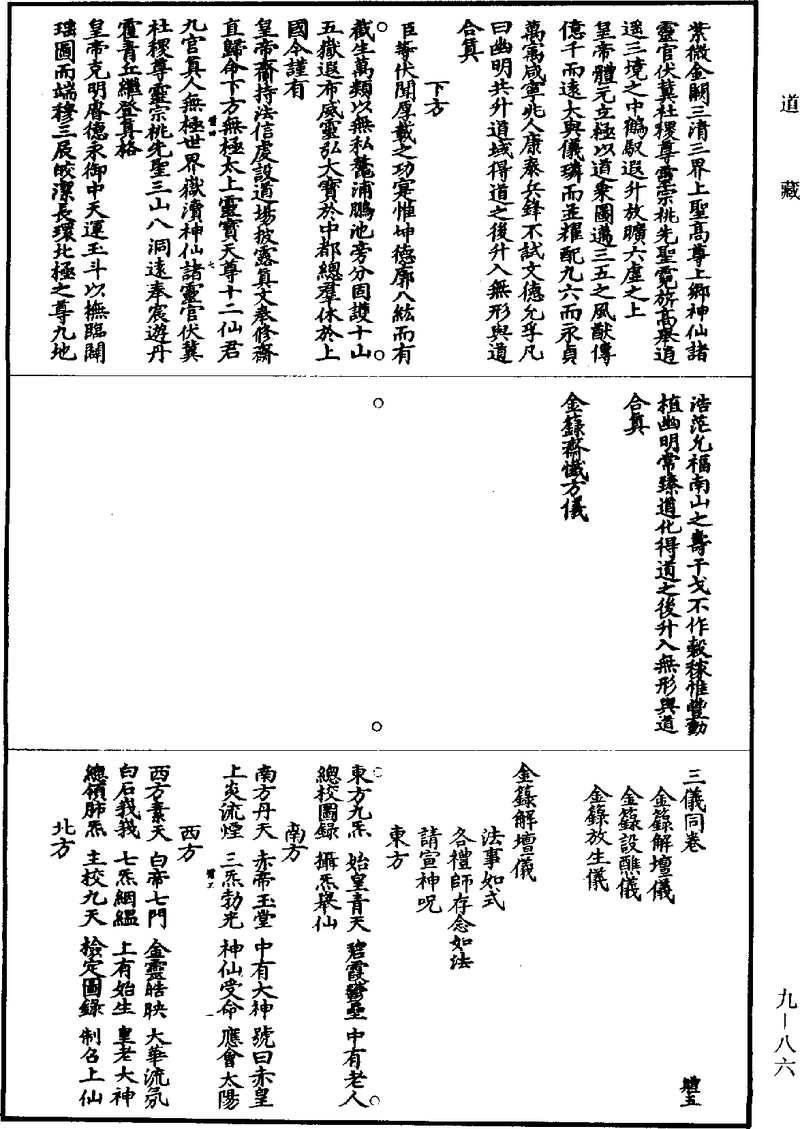 道藏
紫微金闕三清三界上聖高尊上鄉神仙諸
靈官伏冀社稷尊靈宗祧先聖霓旂高舉逍
遥三境之中鶴馭遐升放曠六虛之上
皇帝體元立極以道乘圖邁三五之風猷傳
億千而遠大與儀璘而並耀配九六而永貞
萬寓咸寧兆人康泰兵鋒不試文德允孚凡
曰幽明共升道域得道之後升入無形與道
合真
下方
臣等伏聞厚載之功寔惟坤德廓八紘而有
截生萬類以無私鼇浦鵬池旁分固護十山
五嶽遐布威靈弘大寶於中都總羣休於上
國今謹有
皇帝齎持法信虔設道場披露真文奉修齋
直歸命下方無極太上靈寶天尊十二仙君
九官真人無極世界嶽瀆神仙諸靈官伏冀
社稷尊靈宗祧先聖三山八洞遠奉宸遊丹
霍青丘繼登真格
皇帝克明睿德永御中天運玉斗以撫臨闡
瑶圖而端穆三辰皎潔長環北極之尊九地
浩茫允福南山之壽干戈不作穀稼惟豐動
植幽明常臻道化得道之後升入無形與道
合真
金籙齋懺方儀
三儀同卷
金籙解壇儀
金籙設醮儀
金籙放生儀
金籙解壇儀
法事如式
各禮師存念如法
請宣神呪
東方
東方九炁 始皇青天 碧霞鬱壘 中有老人
總校圖錄 攝炁舉仙
南方
南方丹天 赤帝玉堂 中有大神 號曰赤皇
上炎流煙 三炁勃光 神仙受命 應會太陽
西方
西方素天 白帝七門 金靈皓映 大華流氛
白石峩峩 七炁絪縕 上有始生 皇老大神
總領肺炁 主校九天 檢定圖錄 制召上仙
北方
九—八六